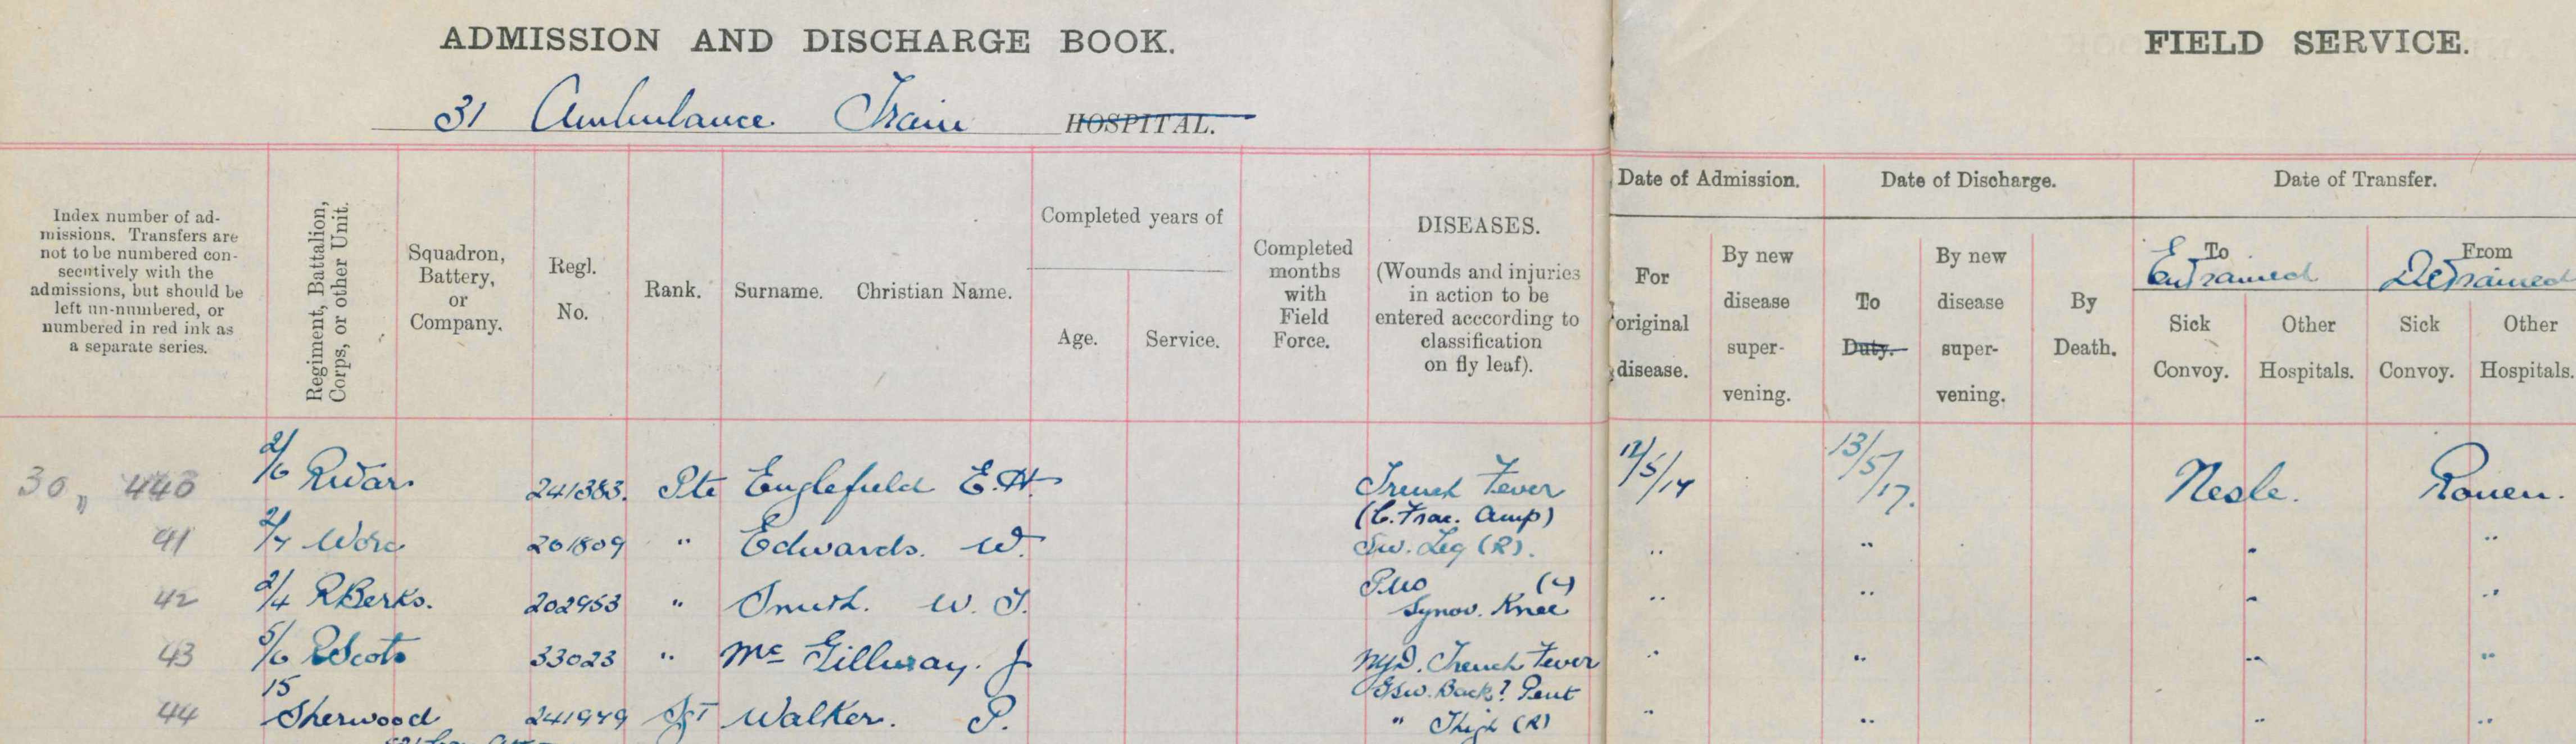 ADMISSION AND DISCHARGE BOOK.
FIELD SERVICE.
31 Ambulance Train HOSPITAL.
Index number of ad-
missions. Transfers are
not to be numbered con-
secutively with the
admissions, but should be
left un-numbered, or
numbered in red ink as
a separate series.
Regiment, Battalion,
Corps, or other Unit.
Squadron,
Battery,
or
Company.
Regl.
No.
Rank.
Surname. Christian Name.
Completed years of
Age.
Service.
Completed
months
with
Field
Force.
DISEASES.
(Wounds and injuries
in action to be
entered acccording to
classification
on fly leaf).
Date of Admission.
For
original
disease.
By new
disease
super-
vening.
Date of Discharge.
To
Duty.
By new
disease
super-
vening.
By
Death.
Date of Transfer.
To
Entrained
Sick
Convoy.
Other
Hospitals.
From
Detrained
Sick
Convoy.
Other
Hospitals.
30,, 440 2/6 RWar 241383. Pte Englefield E.H. Trench Fever 12/5/17 13/5/17. Nesle. Rouen.
(C. Frac. Amp)
41 2/7 Worc 201809 " Edwards. W. Sw. Leg (R). " " " "
PUO (L)
42 2/4 RBerks. 202953 " Smith. W. J. Synov. Knee " " " "
43 5/6 RScots 33023 " Mc Gillivray. J NYD. Trench Fever " " " "
15 Gsw. Back? Pent
44 Sherwood 241979 Sjt Walker. P. " Thigh (R) " " " "